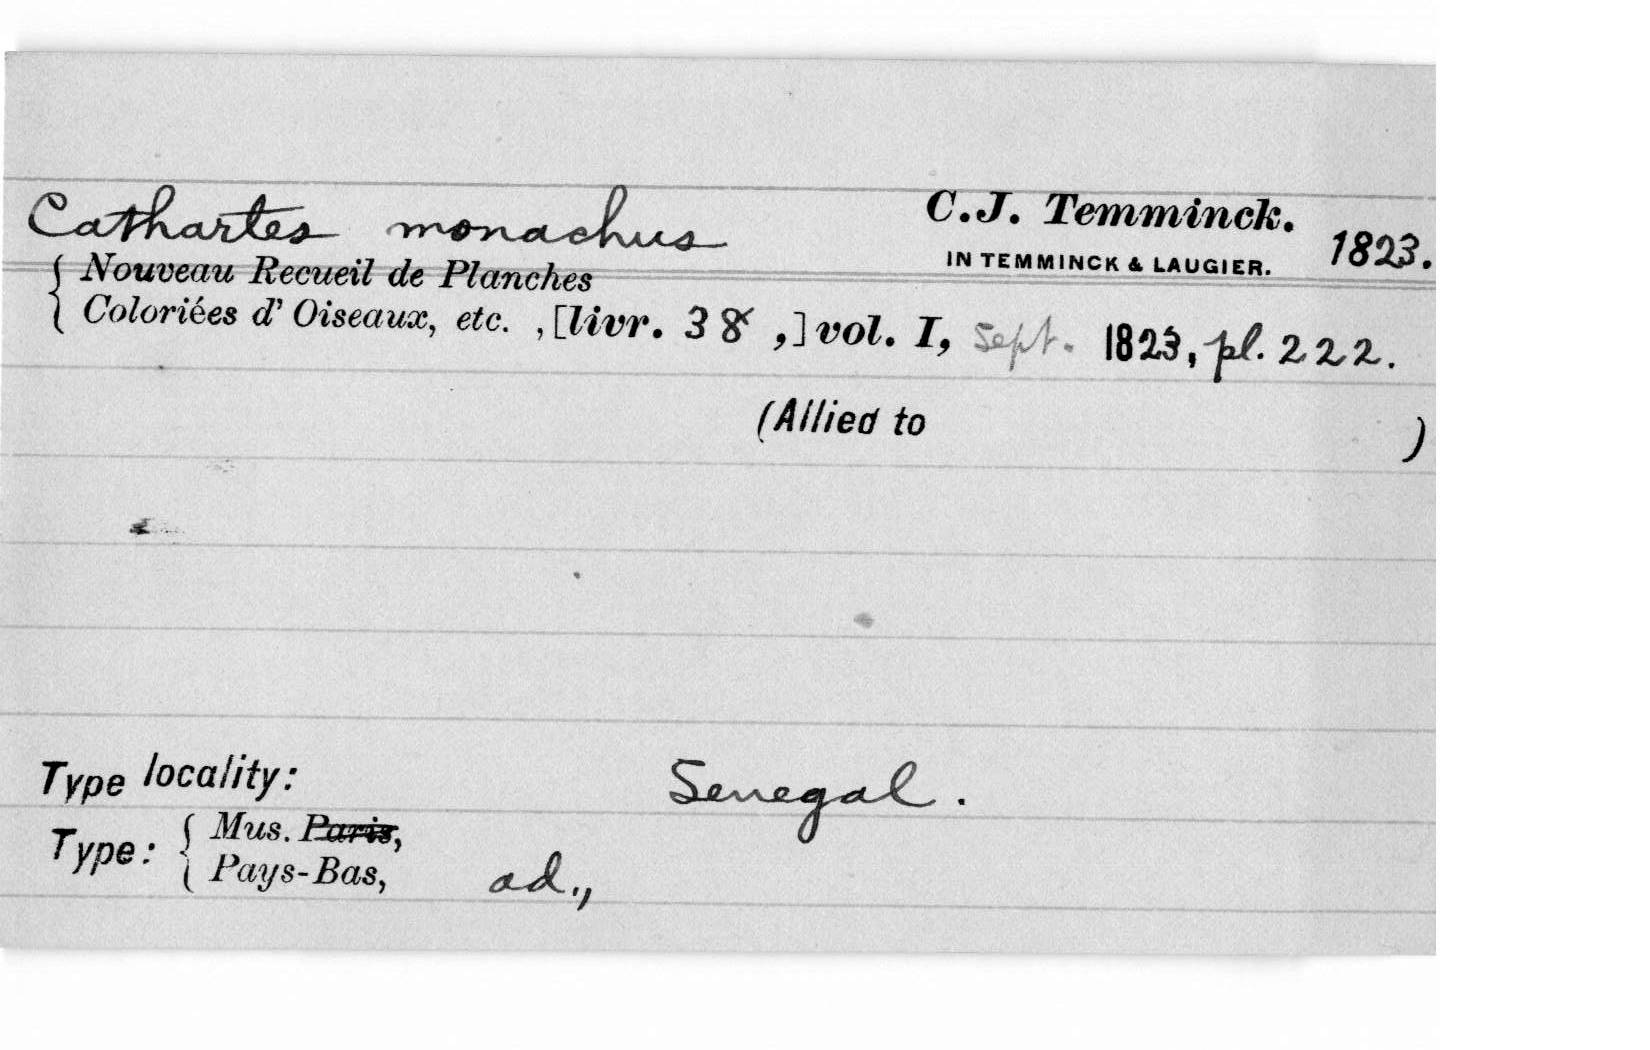 Cathartes monachus C.J. Temminck. 1823.
IN TEMMINCK & LAUGIER.
{ Nouveau Recueil de Planches
Coloriées d' Oiseaux, etc. , [livr. 38 ,] vol. I, Sept. 1823, pl. 222.
(Allied to )
Type locality: Senegal.
Type: { Mus. Paris,
Pays-Bas, ad.,